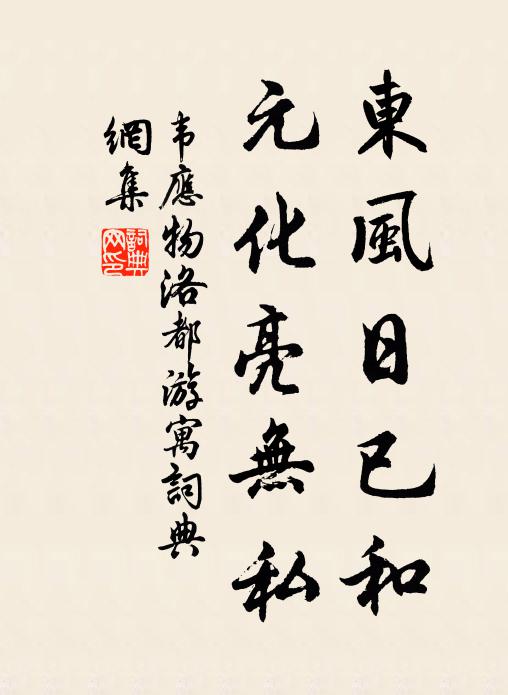 東風日已和
元化亮無私
韦應物洛都游寓詞典
網集
詞典
网印